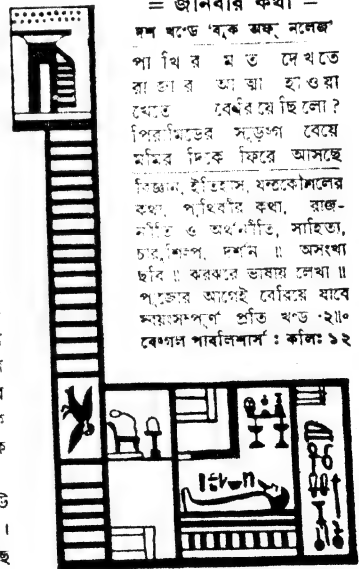 = জানবার কথা =
দশ খণ্ডে 'বুক অফ্ নলেজ'
পাখির মত দেখতে
রাজার আত্মা হাওয়া
খেতে বেরিয়েছিলো?
পিরামিডের সুড়ংগ বেয়ে
মমির দিকে ফিরে আসছে
বিজ্ঞান, ইতিহাস, যন্ত্রকৌশলের
কথা, পৃথিবীর কথা, রাজ-
নীতি ও অর্থনীতি, সাহিত্য,
চারুশিল্প, দর্শন ॥ অসংখ্য
ছবি ॥ ঝরঝরে ভাষায় লেখা ॥
পূজোর আগেই বেরিয়ে যাবে
স্বয়ংসম্পূর্ণ প্রতি খণ্ড ২॥০
বেঙ্গল পাবলিশার্স : কলিঃ ১২